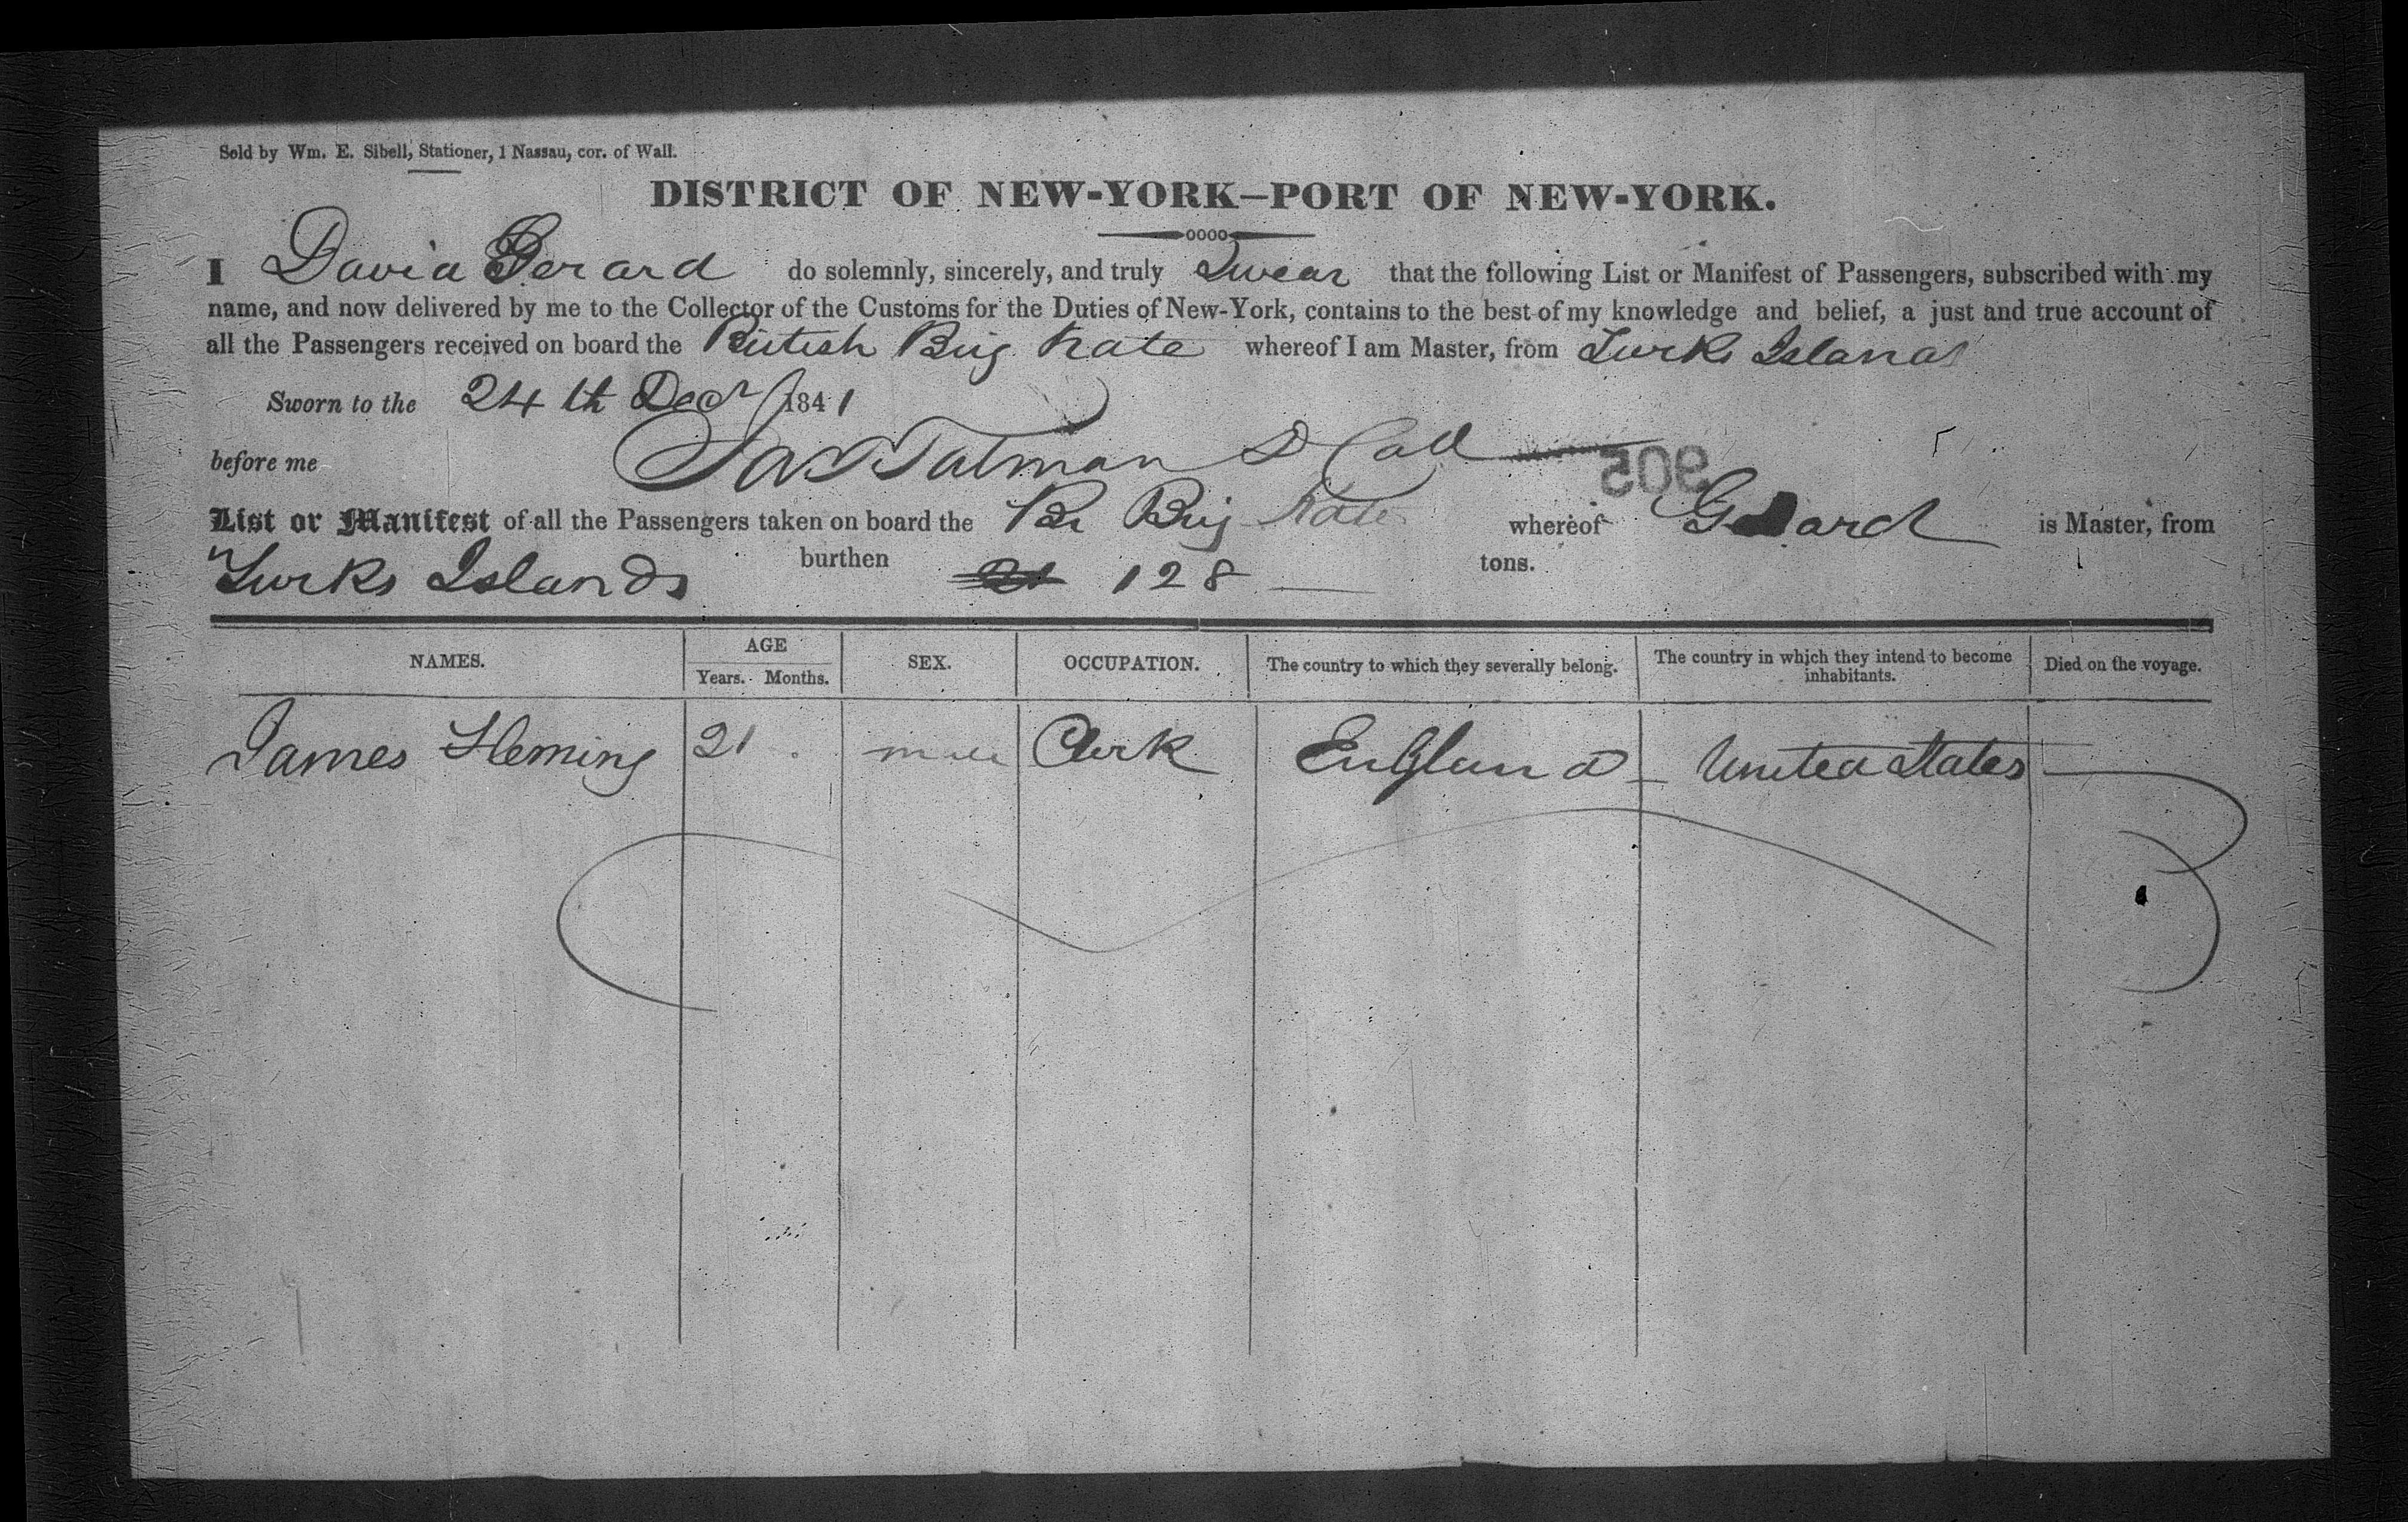 Sold by Wm. E. Sibell, Stationer, 1 Nassau, cor. of Wall.
DISTRICT OF NEW-YORK—PORT OF NEW-YORK.
I David Gerard do solemnly, sincerely, and truly Swear that the following List or Manifest of Passengers, subscribed with my
name, and now delivered by me to the Collector of the Customs for the Duties of New-York, contains to the best of my knowledge and belief, a just and true account of
all the Passengers received on board the British Brig Kate whereof I am Master, from Turks Islands
Sworn to the 24th Decr 1841
before me Jas Talman D Coll
905
List or Manifest of all the Passengers taken on board the Br Brig Kate whereof is Master, from
Turks Islands burthen 128 tons.
NAMES. AGE Years. Months. SEX. OCCUPATION. The country to which they severally belong. The country in which they intend to become inhabitants. Died on the voyage.
James Fleming 21 male Clerk England United States